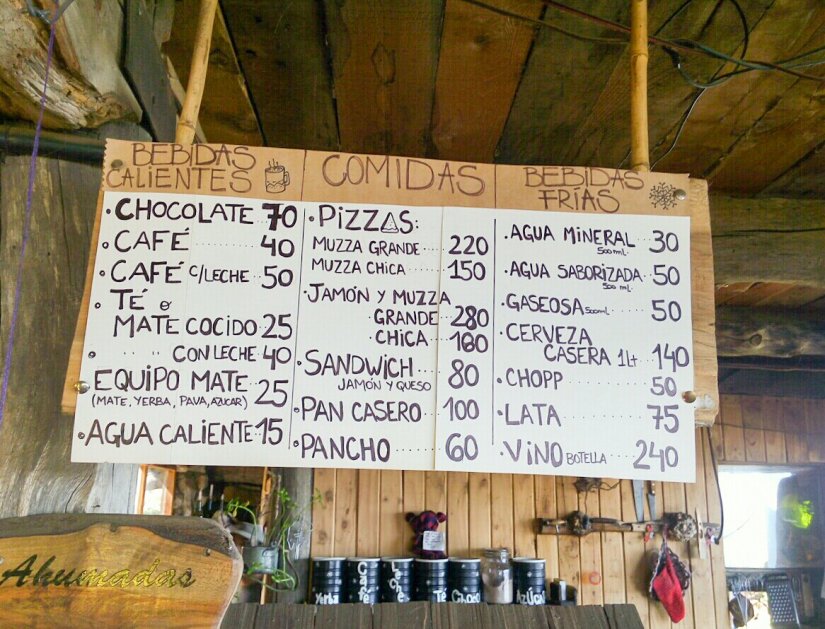 BEBIDAS
CALIENTES
• CHOCOLATE 70
• CAFÉ ........ 40
• CAFÉ C/LECHE .. 50
• TÉ o
MATE COCIDO . 25
• " " CON LECHE . 40
EQUIPO MATE .. 25
(MATE, YERBA, PAVA, AZUCAR)
• AGUA CALIENTE . 15
COMIDAS
• PIZZAS:
MUZZA GRANDE .... 220
MUZZA CHICA ..... 150
• JAMÓN Y MUZZA
GRANDE ... 280
CHICA ....
• SANDWICH ..... 80
JAMÓN Y QUESO
• PAN CASERO ... 100
• PANCHO ...... 60
BEBIDAS
FRÍAS
• AGUA MINERAL .. 30
500 mL
• AGUA SABORIZADA .. 50
500 mL
• GASEOSA 500mL ...... 50
• CERVEZA
CASERA 1Lt . 140
• CHOPP ......... 50
• LATA ......... 75
• VINO BOTELLA .... 240
Ahumadas
Yerba
Café
Té
Choco
Azúcar